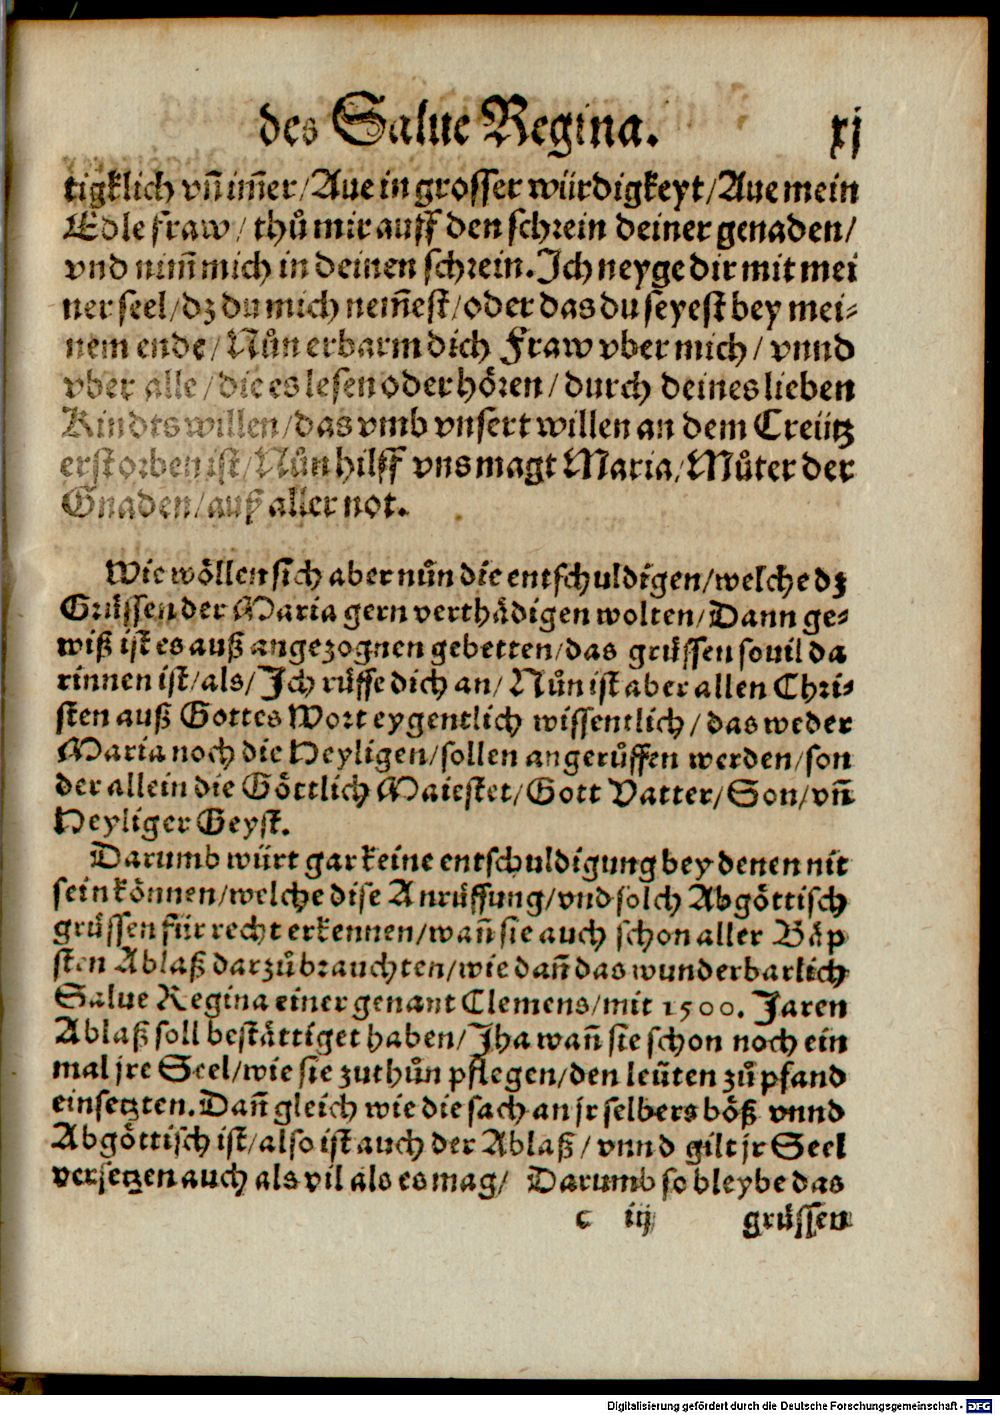 des Salue Regina. xj
tigklich vn̄ im̄er/Aue in grosser würdigkeyt/Aue mein
Edle fraw/thů mir auff den schrein deiner genaden/
vnd nim̄ mich in deinen schrein. Ich neyge dir mit mei
ner seel/dz du mich nem̄est/oder das du seyest bey mei-
nem ende/Nůn erbarm dich Fraw vber mich/vnnd
vber alle/die es lesen oder hören/durch deines lieben
Kindts willen/das vmb vnsert willen an dem Creütz
erstorben ist/Nůn hilff vns magt Maria/Můter der
Gnaden/auß aller not.
Wie wöllen sich aber nůn die entschuldigen/welche dz
Grüssen der Maria gern verthädigen wolten/Dann ge-
wiß ist es auß angezognen gebetten/das grüssen souil da
rinnen ist/als/Ich růffe dich an/Nůn ist aber allen Chri-
sten auß Gottes Wort eygentlich wissentlich/das weder
Maria noch die Heyligen/sollen angerůffen werden/son
der allein die Göttlich Maiestet/Gott Vatter/Son/vn̄
Heyliger Geyst.
Darumb würt gar keine entschuldigung bey denen nit
sein können/welche dise Anrůffung/vnd solch Abgöttisch
grüssen für recht erkennen/wan̄ sie auch schon aller Bäp
sten Ablaß darzů brauchten/wie dan̄ das wunderbarlich
Salue Regina einer genant Clemens/mit 1500. Jaren
Ablaß soll bestättiget haben/Jha wan̄ sie schon noch ein
mal jre Seel/wie sie zuthůn pflegen/den leüten zů pfand
einsetzten. Dan̄ gleich wie die sach an jr selbers böß vnnd
Abgöttisch ist/also ist auch der Ablaß/vnnd gilt jr Seel
versetzen auch als vil als es mag/ Darumb so bleybe das
c iij grüssen
Digitalisierung gefördert durch die Deutsche Forschungsgemeinschaft - DFG